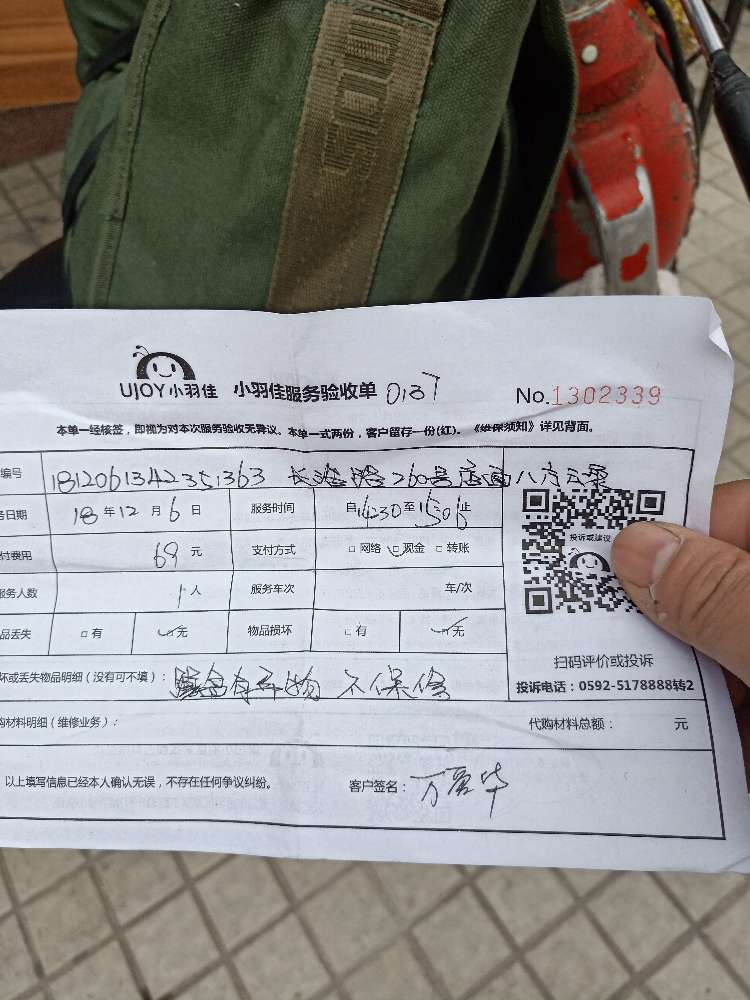 UJOY小羽佳 小羽佳服务验收单 0137 No.1302339
本单一经核签，即视为对本次服务验收无异议。本单一式两份，客户留存一份(红)。《维保须知》详见背面。
编号 1812061342351363 260号店面八方云聚
日期 18 年 12 月 6 日 服务时间 自 1430 至 1506 止
付费用 69 元 支付方式 □ 网络 □ 现金 □ 转账
服务人数 1 人 服务车次 车/次
品丢失 □ 有 □ 无 物品损坏 □ 有 □ 无
投诉或建议
扫码评价或投诉
投诉电话：0592-5178888转2
坏或丢失物品明细（没有可不填）： 不保修
购材料明细（维修业务）： 代购材料总额： 元
以上填写信息已经本人确认无误，不存在任何争议纠纷。 客户签名： 万爱华